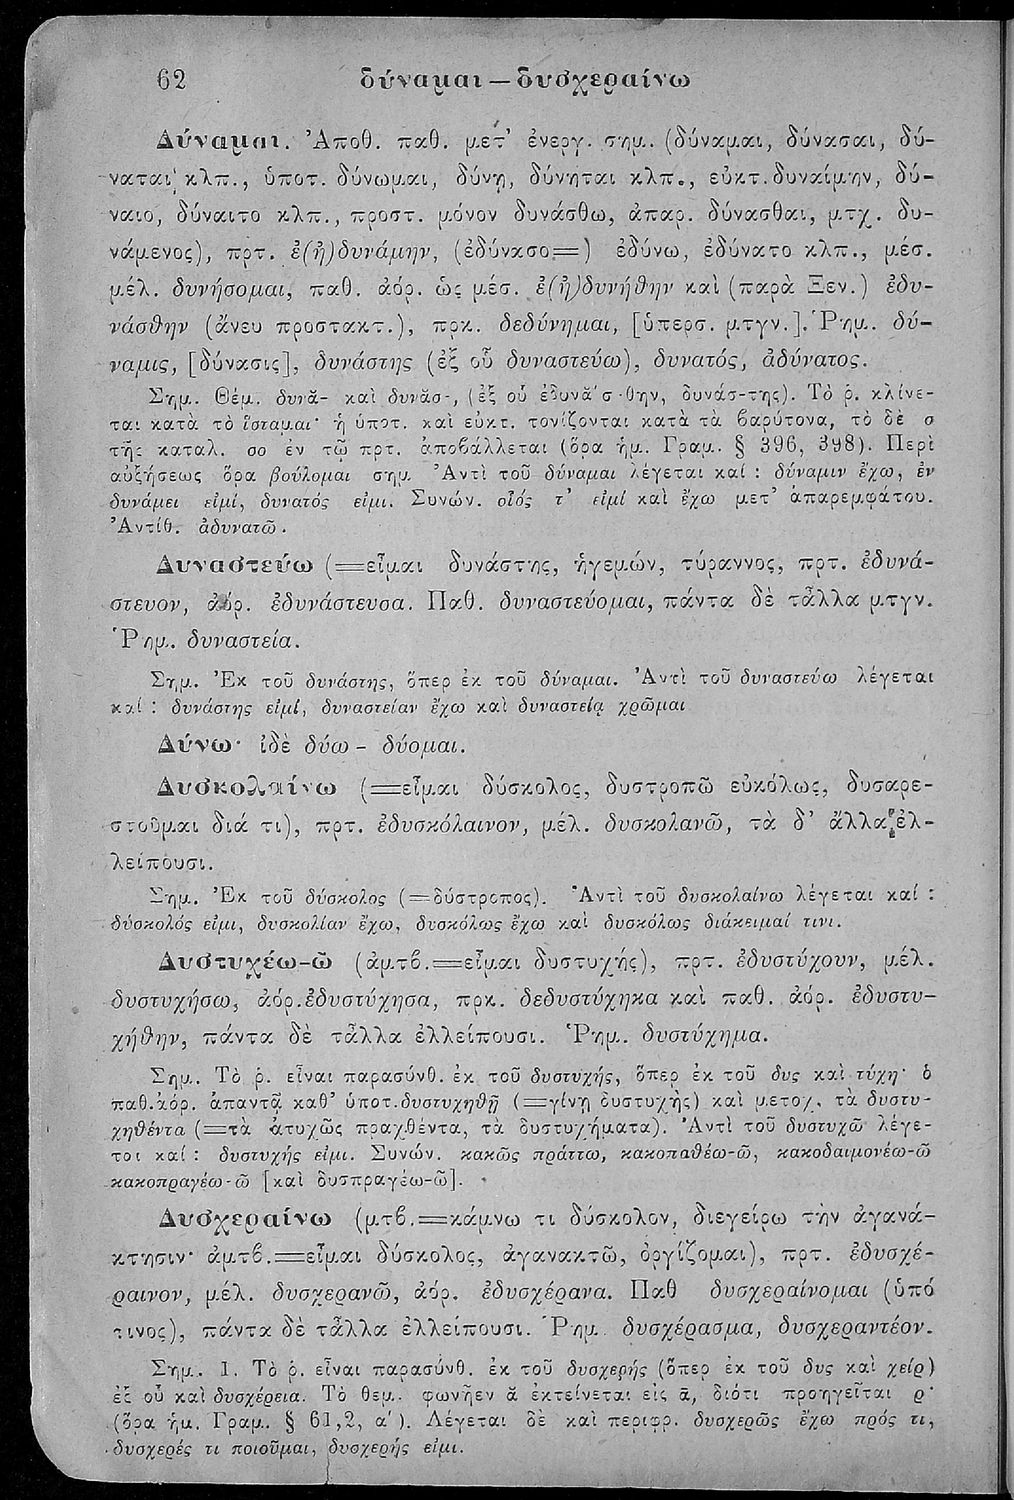 62 δύναμαι — δυσχεραίνω
Δύναμαι. Ἀποθ. παθ. μετ' ἐνεργ. σημ. (δύναμαι, δύνασαι, δύ-
ναται κλπ., ὑποτ. δύνωμαι, δύνῃ, δύνηται κλπ., εὐκτ. δυναίμην, δύ-
ναιο, δύναιτο κλπ., προστ. μόνον δυνάσθω, ἀπαρ. δύνασθαι, μτχ. δυ-
νάμενος), πρτ. ἐ(ἠ)δυνάμην, (ἐδύνασο=) ἐδύνω, ἐδύνατο κλπ., μέσ.
μέλ. δυνήσομαι, παθ. ἀόρ. ὡς μέσ. ἐ(ἠ)δυνήθην καὶ (παρὰ Ξεν.) ἐδυ-
νάσθην (ἄνευ προστακτ.), πρκ. δεδύνημαι, [ὑπερσ. μτγν.]. Ῥημ. δύ-
ναμις, [δύνασις], δυνάστης (ἐξ οὗ δυναστεύω), δυνατός, ἀδύνατος.
Σημ. Θέμ. δυνᾰ- καὶ δυνᾰσ-, (ἐξ οὗ ἐδυνά σ-θην, δυνάσ-της). Τὸ ῥ. κλίνε-
ται κατὰ τὸ ἵσταμαι· ἡ ὑποτ. καὶ εὐκτ. τονίζονται κατὰ τὰ βαρύτονα, τὸ δὲ σ
τῆς καταλ. σο ἐν τῷ πρτ. ἀποβάλλεται (ὅρα ἡμ. Γραμ. § 396, 398). Περὶ
αὐξήσεως ὅρα βούλομαι σημ. Ἀντὶ τοῦ δύναμαι λέγεται καί : δύναμιν ἔχω, ἐν
δυνάμει εἰμί, δυνατός εἰμι. Συνών. οἷός τ' εἰμί καὶ ἔχω μετ' ἀπαρεμφάτου.
Ἀντίθ. ἀδυνατῶ.
Δυναστεύω (=εἶμαι δυνάστης, ἡγεμών, τύραννος, πρτ. ἐδυνά-
στευον, ἀόρ. ἐδυνάστευσα. Παθ. δυναστεύομαι, πάντα δὲ τἆλλα μτγν.
Ῥημ. δυναστεία.
Σημ. Ἐκ τοῦ δυνάστης, ὅπερ ἐκ τοῦ δύναμαι. Ἀντὶ τοῦ δυναστεύω λέγεται
καί : δυνάστης εἰμί, δυναστείαν ἔχω καὶ δυναστείᾳ χρῶμαι
Δύνω· ἰδὲ δύω - δύομαι.
Δυσκολαίνω (=εἶμαι δύσκολος, δυστροπῶ εὐκόλως, δυσαρε-
στοῦμαι διά τι), πρτ. ἐδυσκόλαινον, μέλ. δυσκολανῶ, τὰ δ' ἄλλα ἐλ-
λείπουσι.
Σημ. Ἐκ τοῦ δύσκολος (=δύστροπος). Ἀντὶ τοῦ δυσκολαίνω λέγεται καί :
δύσκολός εἰμι, δυσκολίαν ἔχω, δυσκόλως ἔχω καὶ δυσκόλως διάκειμαί τινι.
Δυστυχέω-ῶ (ἀμτβ.=εἶμαι δυστυχής), πρτ. ἐδυστύχουν, μέλ.
δυστυχήσω, ἀόρ. ἐδυστύχησα, πρκ. δεδυστύχηκα καὶ παθ. ἀόρ. ἐδυστυ-
χήθην, πάντα δὲ τἆλλα ἐλλείπουσι. Ῥημ. δυστύχημα.
Σημ. Τὸ ῥ. εἶναι παρασύνθ. ἐκ τοῦ δυστυχής, ὅπερ ἐκ τοῦ δυς καὶ τύχη· ὁ
παθ. ἀόρ. ἀπαντᾷ καθ' ὑποτ. δυστυχηθῇ (=γίνῃ δυστυχὴς) καὶ μετοχ. τὰ δυστυ-
χηθέντα (=τὰ ἀτυχῶς πραχθέντα, τὰ δυστυχήματα). Ἀντὶ τοῦ δυστυχῶ λέγε-
ται καί : δυστυχής εἰμι. Συνών. κακῶς πράττω, κακοπαθέω-ῶ, κακοδαιμονέω-ῶ
κακοπραγέω-ῶ [καὶ δυσπραγέω-ῶ].
Δυσχεραίνω (μτβ.=κάμνω τι δύσκολον, διεγείρω τὴν ἀγανά-
κτησιν· ἀμτβ.=εἶμαι δύσκολος, ἀγανακτῶ, ὀργίζομαι), πρτ. ἐδυσχέ-
ραινον, μέλ. δυσχερανῶ, ἀόρ. ἐδυσχέρανα. Παθ δυσχεραίνομαι (ὑπό
τινος), πάντα δὲ τἆλλα ἐλλείπουσι. Ῥημ. δυσχέρασμα, δυσχεραντέον.
Σημ. 1. Τὸ ῥ. εἶναι παρασύνθ. ἐκ τοῦ δυσχερής (ὅπερ ἐκ τοῦ δυς καὶ χείρ)
ἐξ οὗ καὶ δυσχέρεια. Τὸ θεμ. φωνῆεν ᾰ ἐκτείνεται εἰς ᾱ, διότι προηγεῖται ρ·
(ὅρα ἡμ. Γραμ. § 61,2, α'). Λέγεται δὲ καὶ περιφρ. δυσχερῶς ἔχω πρός τι,
δυσχερές τι ποιοῦμαι, δυσχερής εἰμι.